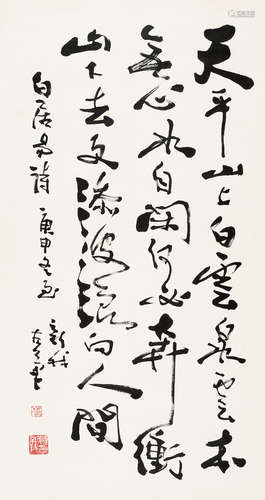 天平山上白雲泉雲本
無心水自閑何必奔衝
山下去更添波浪向人間
白居易詩 庚申冬至
新我左筆